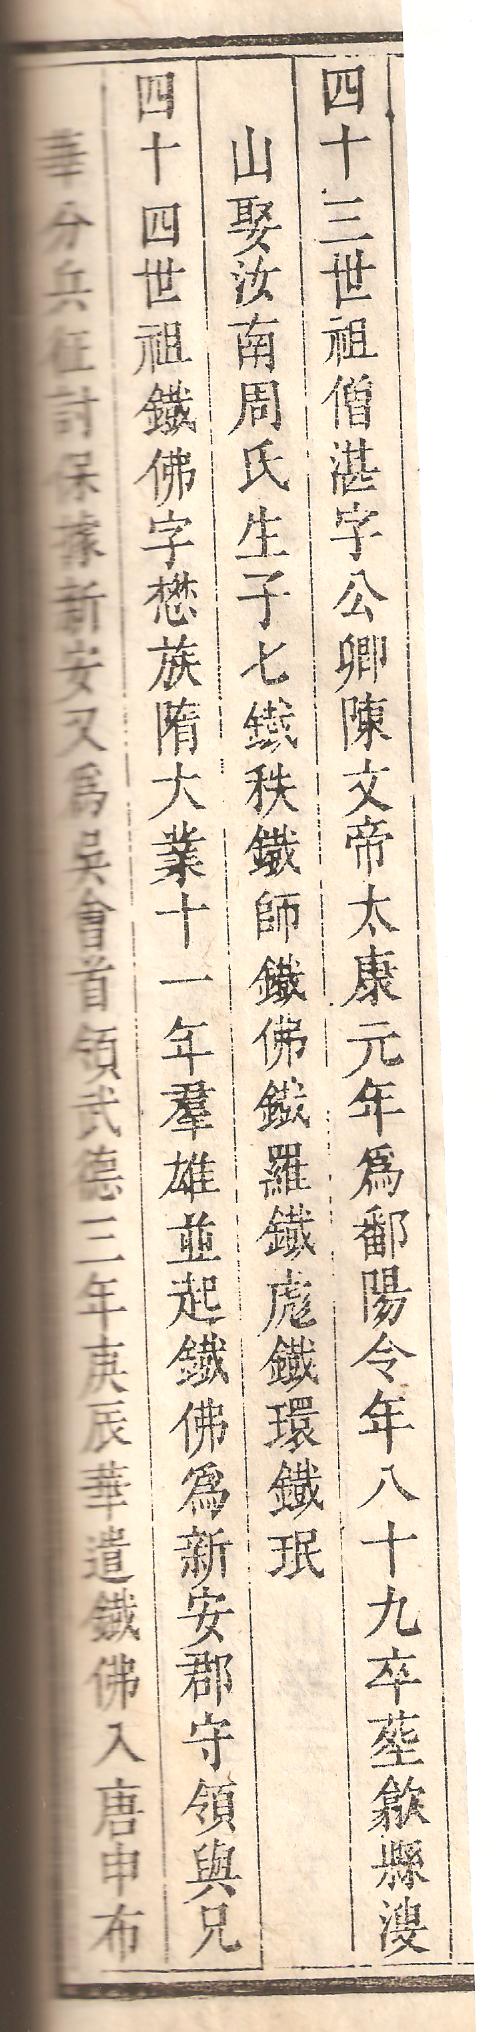 四十三世祖僧湛字公卿陳文帝太康元年爲鄱陽令年八十九卒塟歙縣溲
山娶汝南周氏生子七鐵秩鐵師鐵佛鐵羅鐵彪鐵環鐵珉
四十四世祖鐵佛字懋族隋大業十一年羣雄並起鐵佛爲新安郡守領與兄
華分兵征討保據新安又爲吳會首領武德三年庚辰華遣鐵佛入唐申布